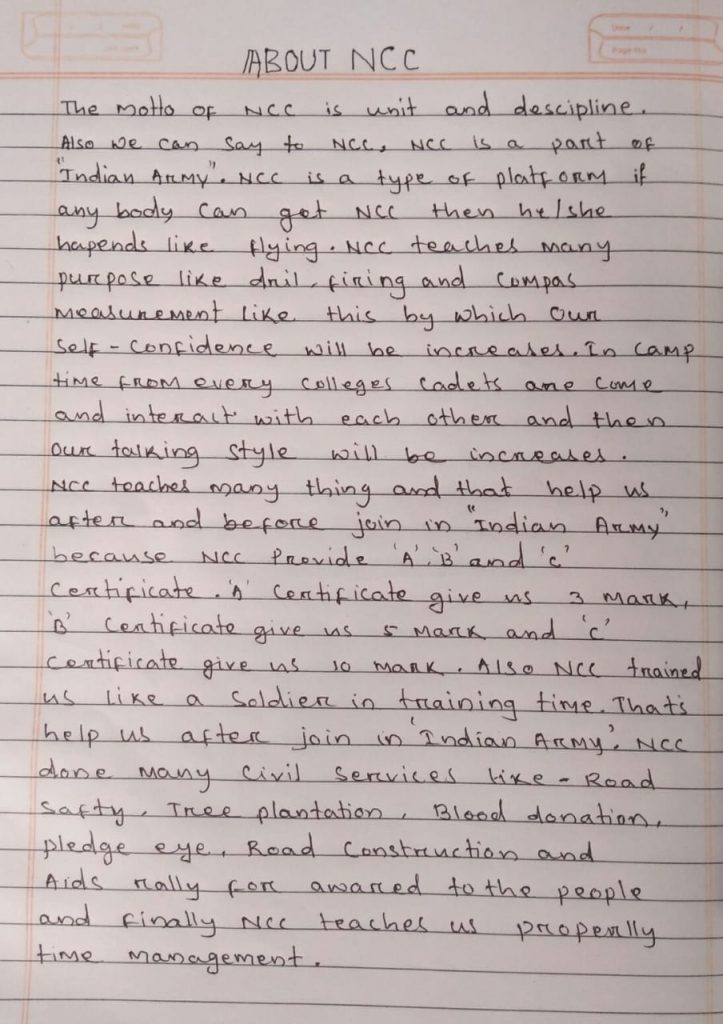 ABOUT NCC
The motto of NCC is unit and descipline.
Also we can say to NCC, NCC is a part of
"Indian Army". NCC is a type of platform if
any body can get NCC then he/she
hapends like flying. NCC teaches many
purpose like dril, firing and compas
measurement like this by which our
self-confidence will be increases. In camp
time from every colleges cadets are come
and interact with each other and then
our talking style will be increases.
NCC teaches many thing and that help us
after and before join in "Indian Army"
because NCC provide 'A', 'B' and 'C'
certificate. 'A' certificate give us 3 mark,
'B' certificate give us 5 mark and 'C'
certificate give us 10 mark. Also NCC trained
us like a soldier in training time. That's
help us after join in 'Indian Army'. NCC
done many civil services like - Road
safty, Tree plantation, Blood donation,
pledge eye, Road construction and
Aids rally for awared to the people
and finally NCC teaches us properlly
time management.